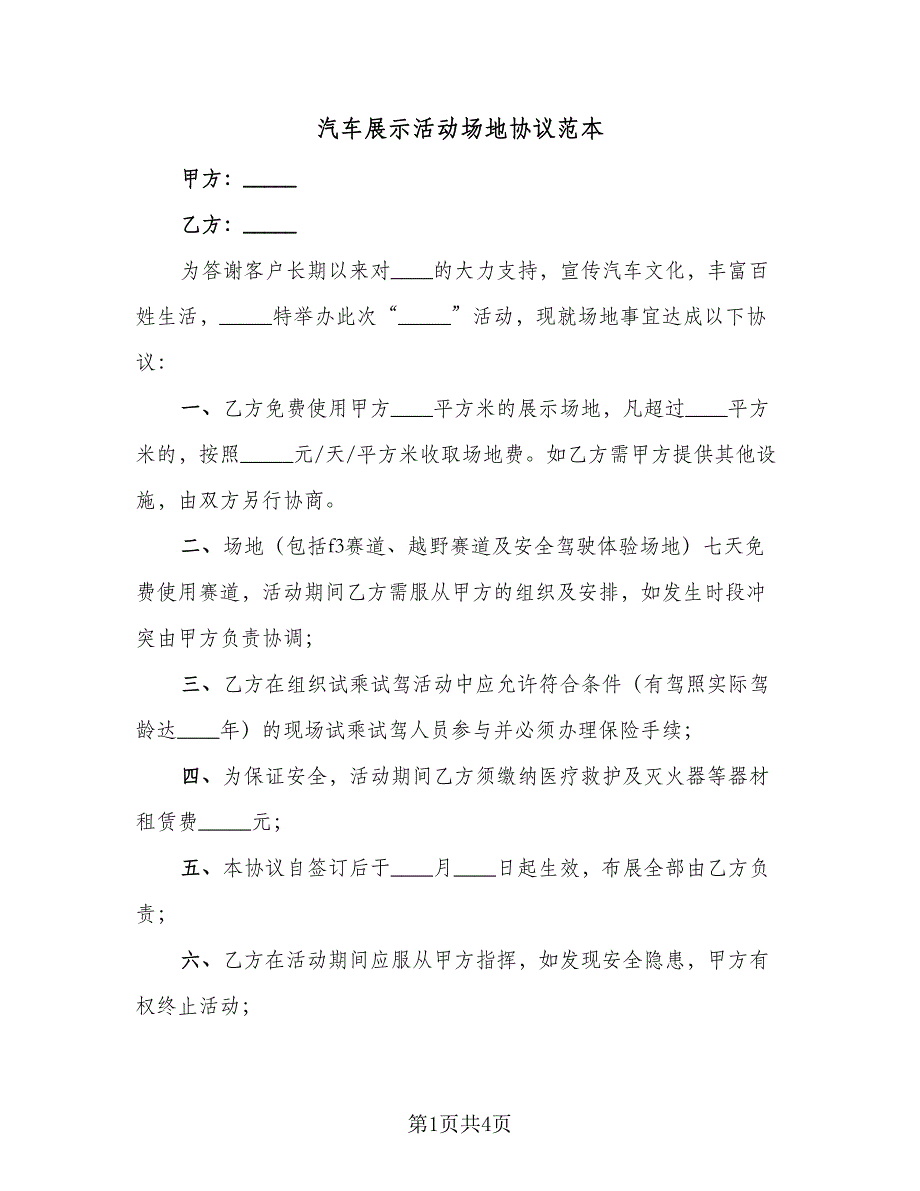 汽车展示活动场地协议范本
甲方：_____
乙方：_____
为答谢客户长期以来对____的大力支持，宣传汽车文化，丰富百
姓生活，_____特举办此次“_____”活动，现就场地事宜达成以下协
议：
一、乙方免费使用甲方____平方米的展示场地，凡超过____平方
米的，按照_____元/天/平方米收取场地费。如乙方需甲方提供其他设
施，由双方另行协商。
二、场地（包括f3赛道、越野赛道及安全驾驶体验场地）七天免
费使用赛道，活动期间乙方需服从甲方的组织及安排，如发生时段冲
突由甲方负责协调；
三、乙方在组织试乘试驾活动中应允许符合条件（有驾照实际驾
龄达____年）的现场试乘试驾人员参与并必须办理保险手续；
四、为保证安全，活动期间乙方须缴纳医疗救护及灭火器等器材
租赁费_____元；
五、本协议自签订后于____月____日起生效，布展全部由乙方负
责；
六、乙方在活动期间应服从甲方指挥，如发现安全隐患，甲方有
权终止活动；
第1页共4页